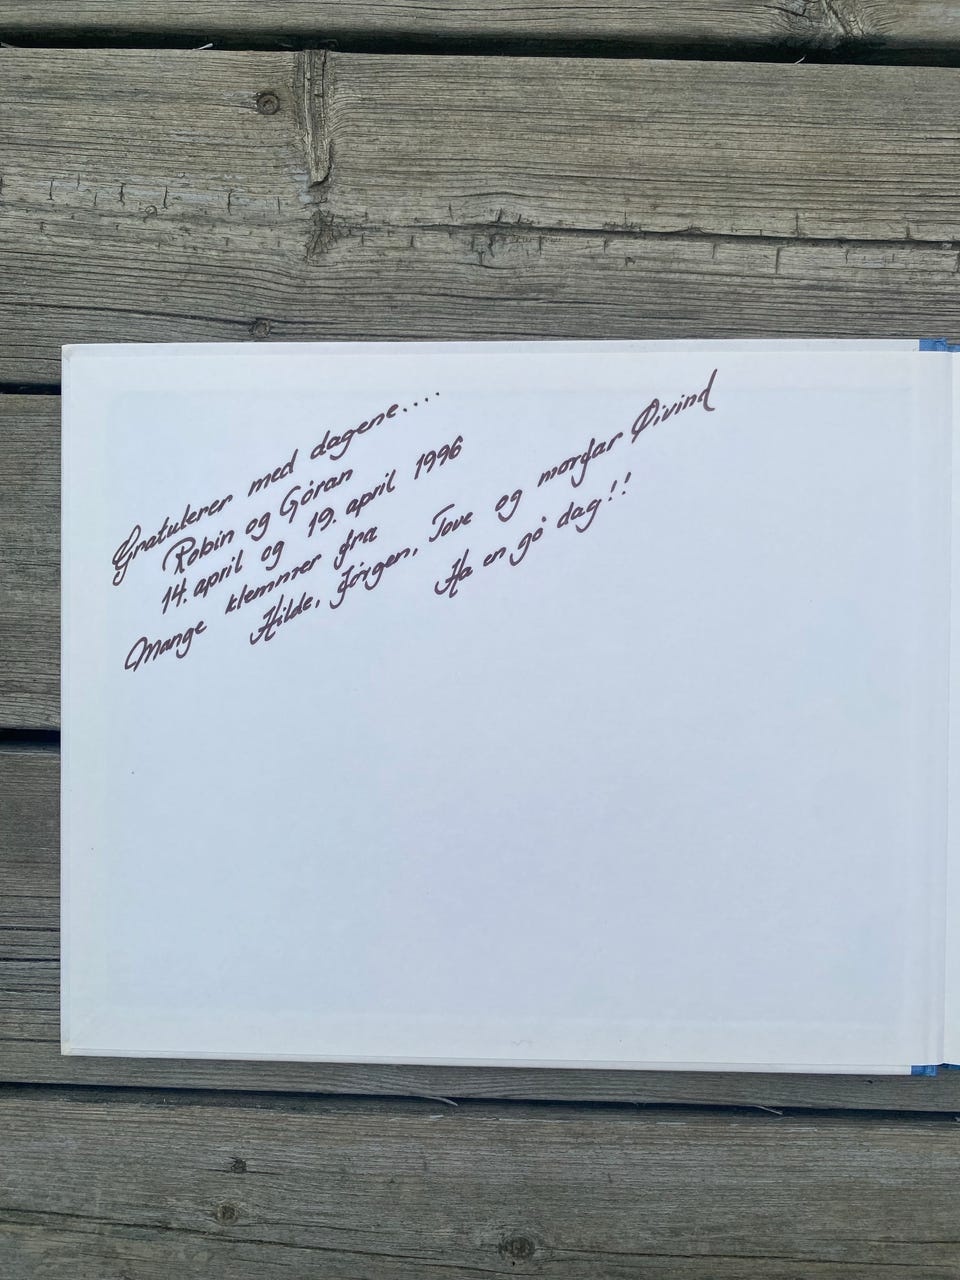 Gratulerer med dagene....
Robin og Göran
14. april og 19. april 1996
Mange klemmer fra
Hilde, Jørgen, Tove og morfar Øivind
Ha en gó dag!!